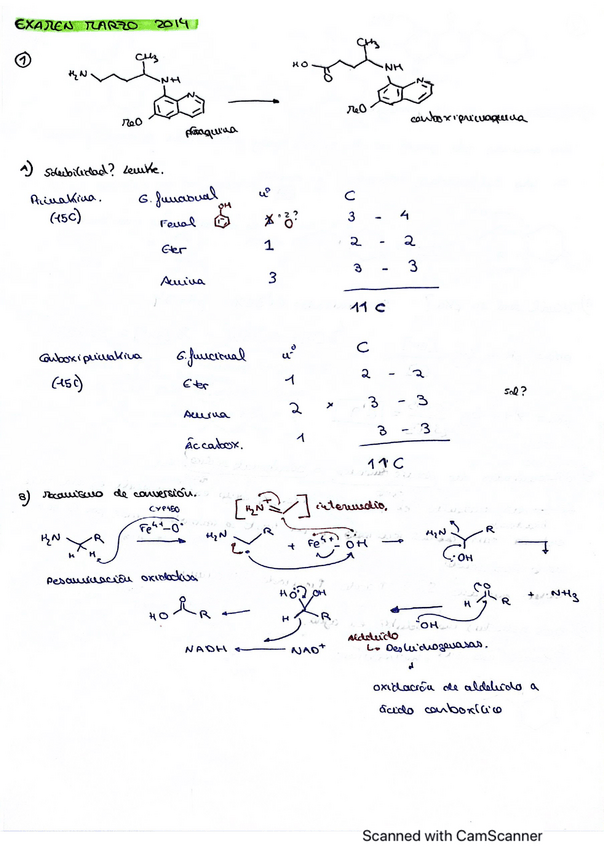 EXAMEN MARZO 2014
1
CH3
H2N
NH
N
MeO
primaquina
CH3
HO
O
NH
N
MeO
carboxiprimaquina
A) Solubilidad? Lemke.
Primakina. G. funcional nº C
(15C)
OH
Fenol 2? 0 3 - 4
Eter 1 2 - 2
Amina 3 3 - 3
11 C
Carboxiprimakina G. funcional nº C
(15C)
Eter 1 2 - 2
sol?
Amina 2 x 3 - 3
Ác carbox. 1 3 - 3
11 C
B) Mecanismo de conversión.
CYP450
[H2N+] intermedio.
H2N R H H Fe4+-O H2N R + Fe4+-OH H2N R OH
Desaminación oxidativa
HO O R HO OH H R O H R + NH3
OH
Aldehído
NADH NAD+ Deshidrogenasas.
oxidación de aldehído a
ácido carboxílico
Scanned with CamScanner